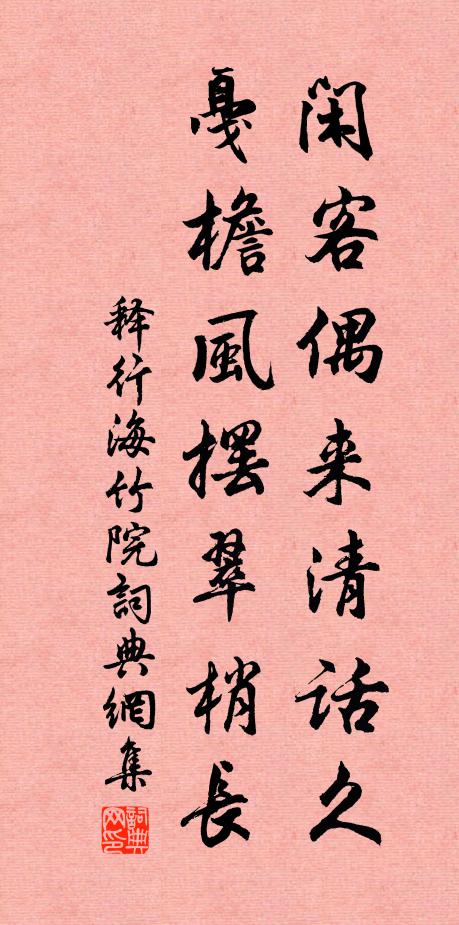 闲客偶来清话久
戛檐風摆翠梢長
释行海竹院詞典網集
詞典网印